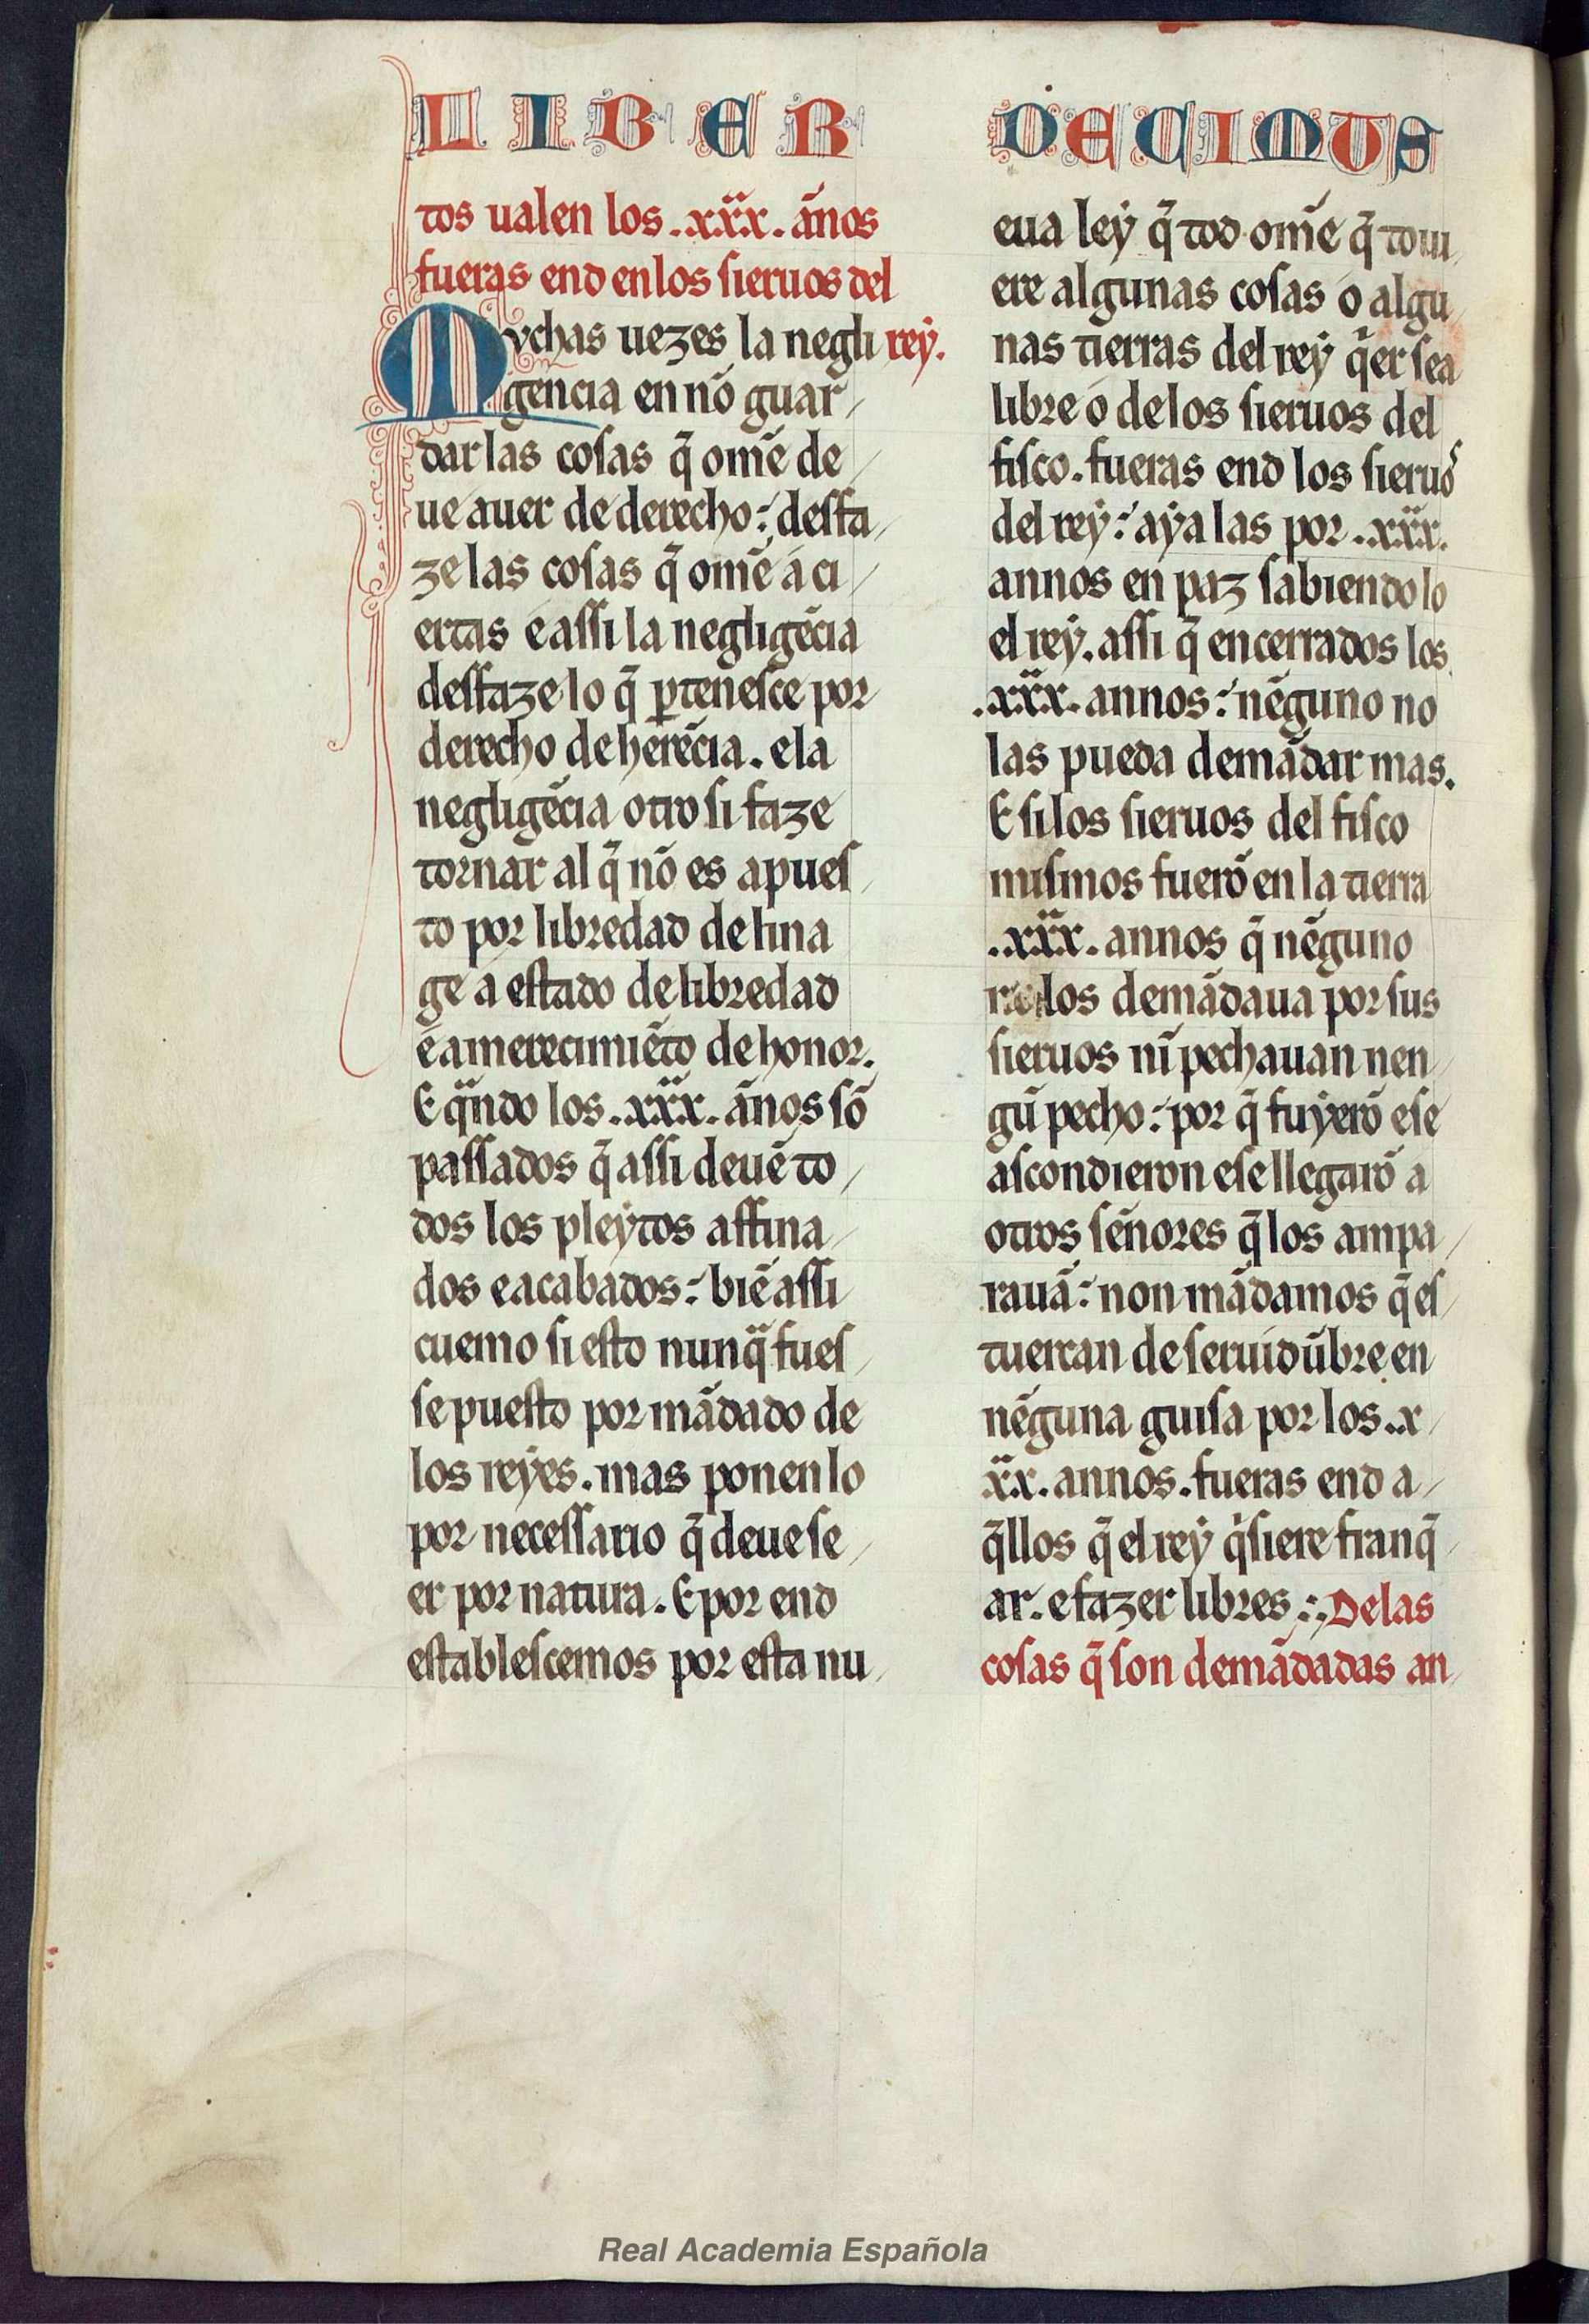 LIBER DECIMUS
tos ualen los .xxx. ãnos
fueras end en los sieruos del
Mvchas uezes la negli rey.
gencia en nõ guar
dar las cosas q̃ omẽ de
ue auer de derecho: desfa
ze las cosas q̃ omẽ á ci
ertas e assi la negligẽcia
desfaze lo q̃ ꝑtenesce por
derecho de herẽcia. e la
negligẽcia otrosi faze
tornar al q̃ nõ es apues
to por libredad de lina
ge a estado de libredad
e a merecimiẽto de honor.
E qᷓndo los .xxx. ãnos sõ
passados q̃ assi deuẽ to
dos los pleytos affina
dos e acabados: biẽ assi
cuemo si esto nunqᷓ fues
se puesto por mãdado de
los reyes. mas ponen lo
por necessario q̃ deue se
er por natura. E por end
establescemos por esta nu
eua ley q̃ tod omẽ q̃ toui
ere algunas cosas o algu
nas tierras del rey q̃er sea
libre o de los sieruos del
fisco. fueras end los sieruos
del rey: aya las por .xxx.
annos en paz sabiendo lo
el rey. assi q̃ en cerrados los
.xxx. annos: nẽguno no
las pueda demãdar mas.
E si los sieruos del fisco
mismos fuerõ en la tierra
.xxx. annos q̃ nẽguno
los demãdaua por sus
sieruos nĩ pechauan nen
gũ pecho: por q̃ fuyerõ e se
ascondieron e se llegarõ a
otros sẽnores q̃ los ampa
rauã: non mãdamos q̃ es
tuercan de seruidũbre en
nẽguna guisa por los .x
xx. annos. fueras end a
q̃llos q̃ el rey qͥsiere franq̃
ar. e fazer libres. De las
cosas q̃ son demãdadas an
Real Academia Española